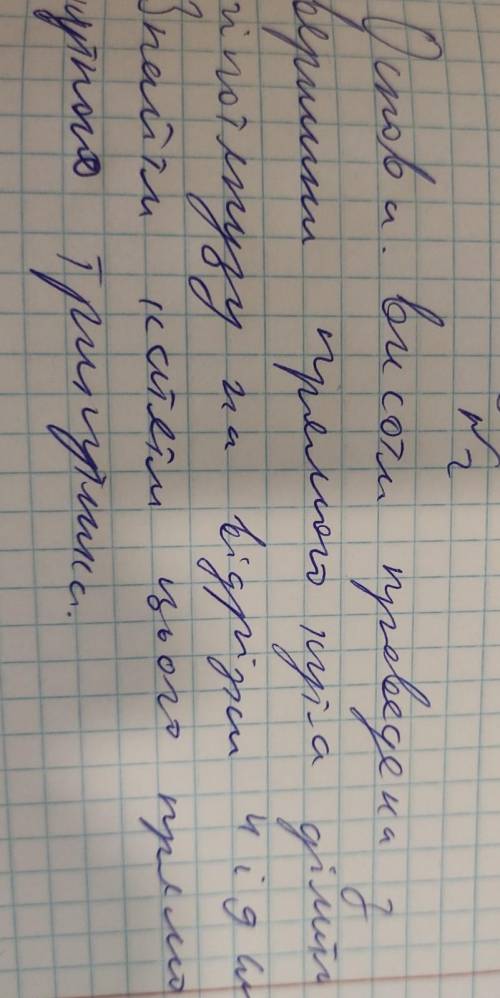 №2
Основа. висоти проведена з
вершини прямого кута ділить
гіпотенузу на відрізки 4 і 9 см
Знайти катети цього прямо
кутного трикутника.